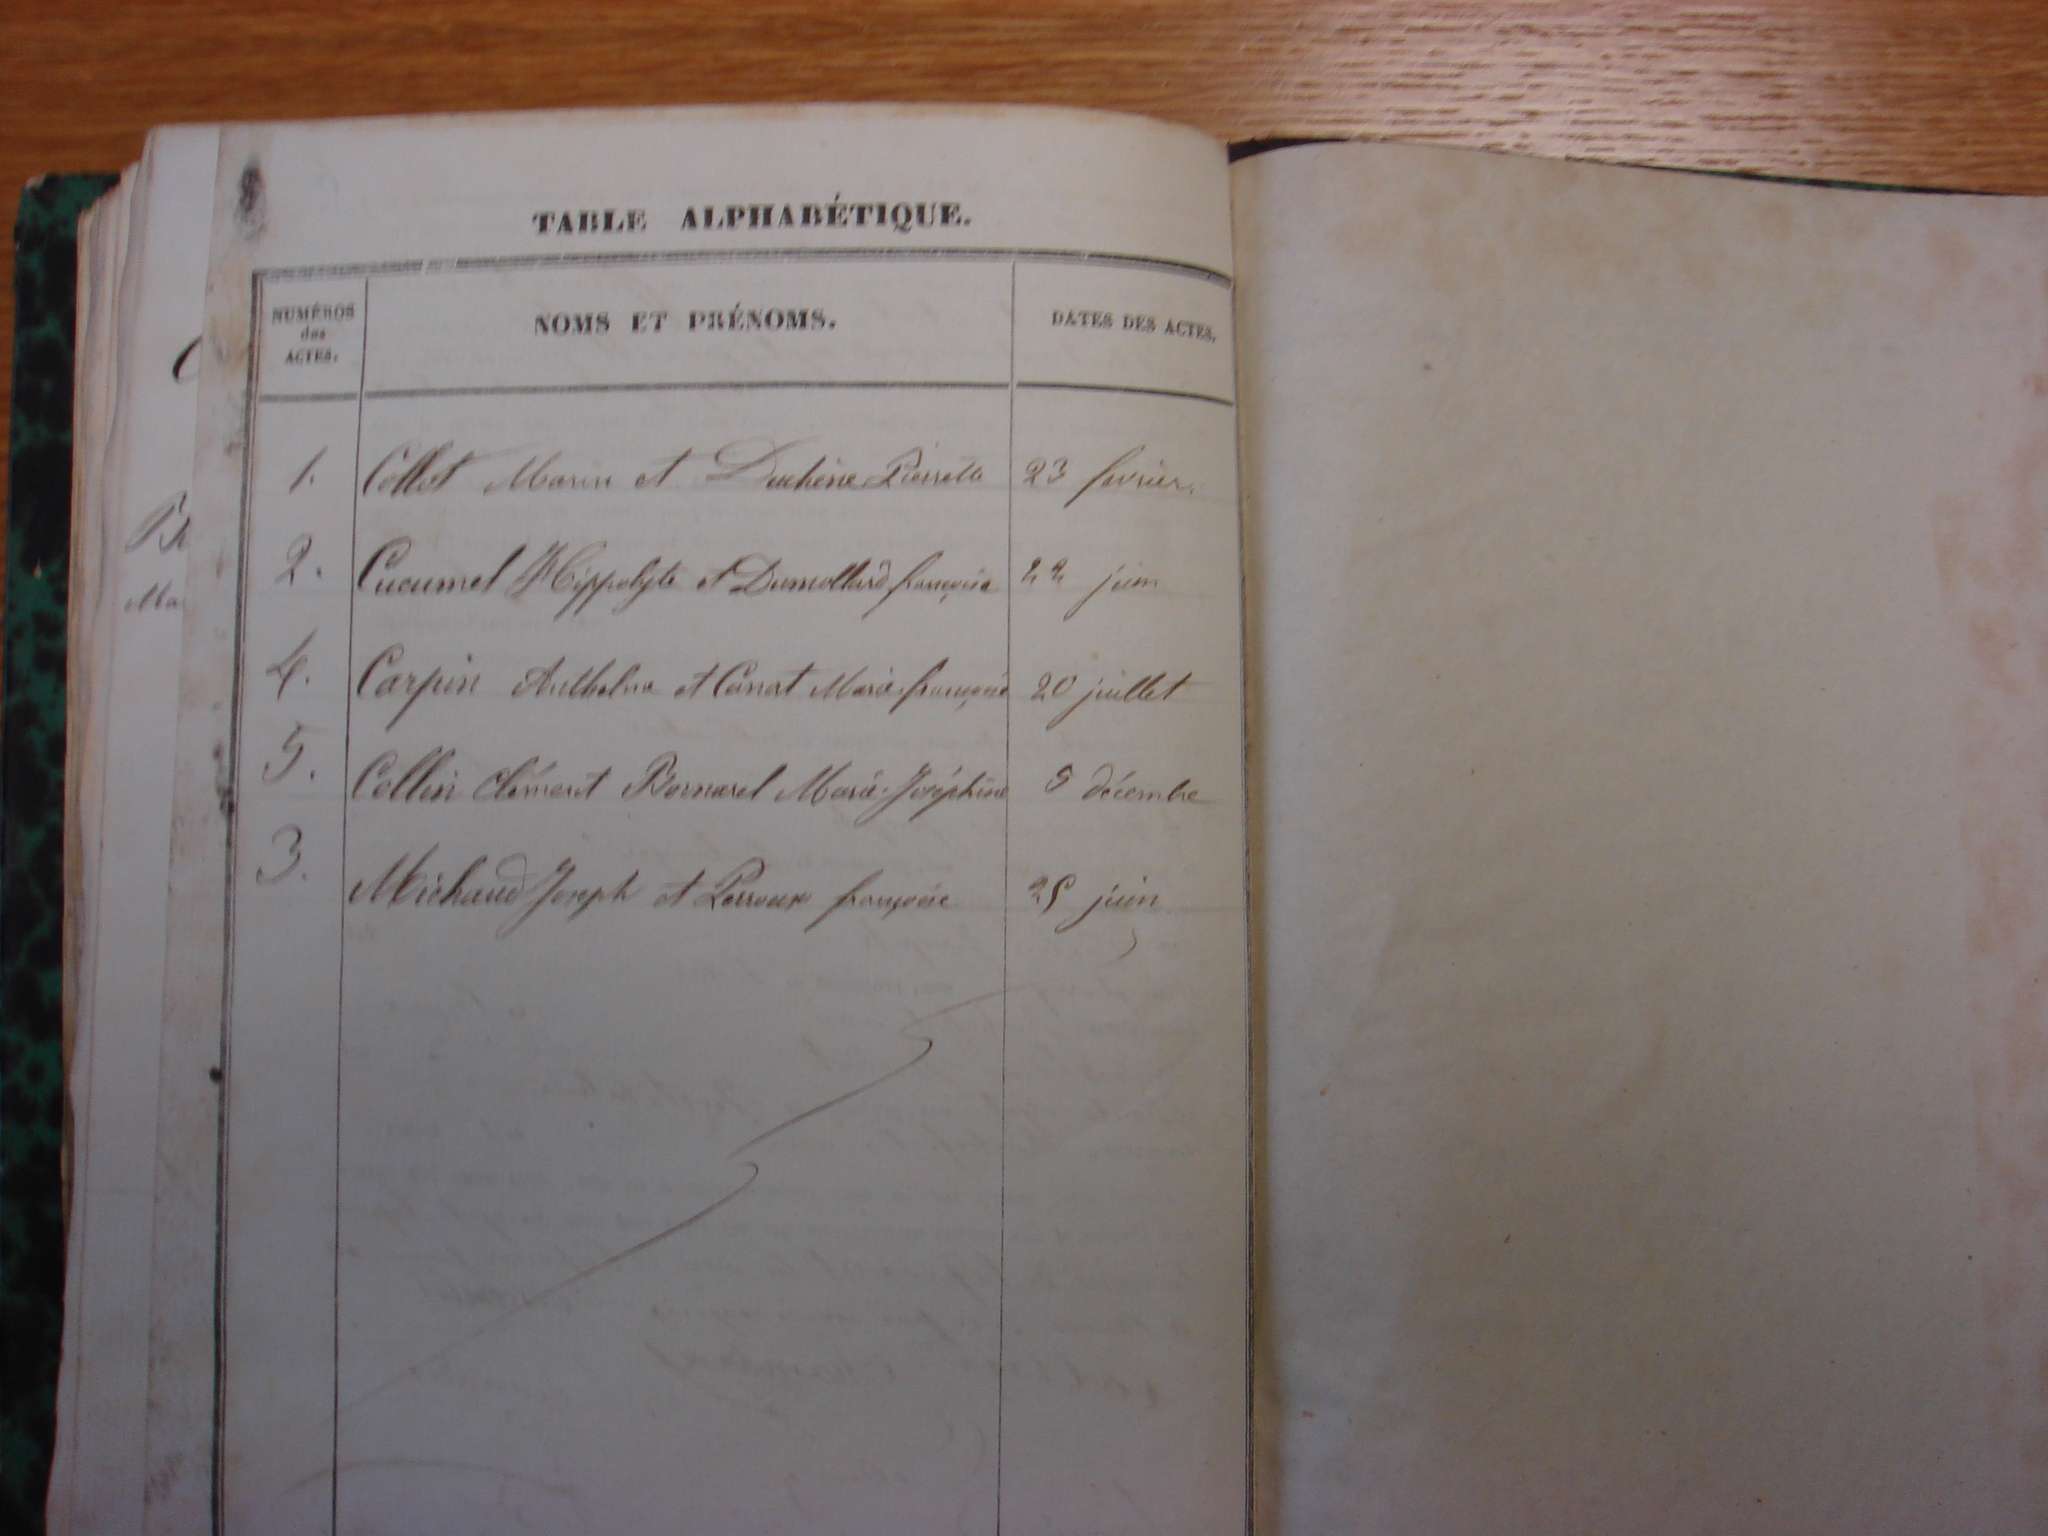 TABLE ALPHABÉTIQUE.
NUMÉROS des ACTES. NOMS ET PRÉNOMS. DATES DES ACTES.
1. Collet Marin et Duchêne Pierrette 23 février.
2. Cucumel Hippolyte et Dumollard françoise 22 juin
4. Carpin Anthelme et Canat Marie françoise 20 juillet
5. Collin Clément Bornarel Marie-Joséphine 5 décembre
3. Michaud Joseph et Perroux françoise 25 juin